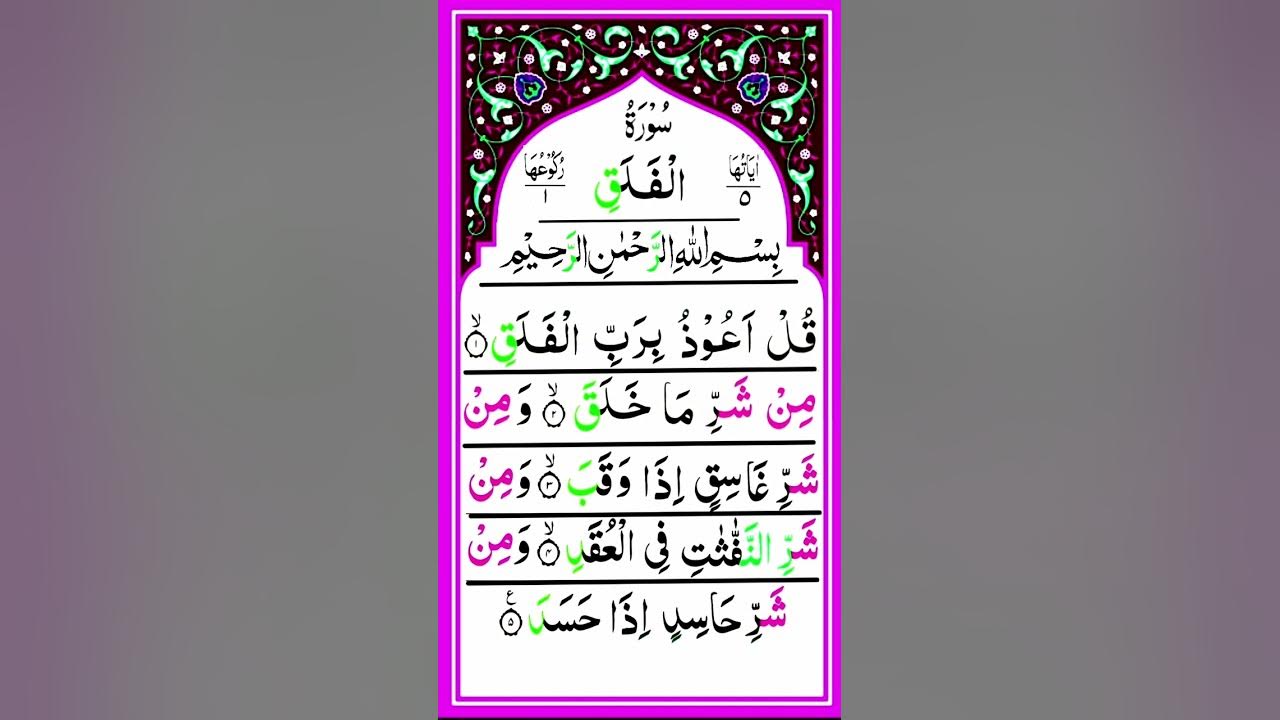 سُوْرَةُ
اٰيَاتُهَا ٥ الْفَلَقِ رُكُوْعُهَا ١
بِسْمِ اللّٰهِ الرَّحْمٰنِ الرَّحِيْمِ
قُلْ اَعُوْذُ بِرَبِّ الْفَلَقِ ۙ‏﴿۱﴾
مِنْ شَرِّ مَا خَلَقَ ۙ‏﴿۲﴾ وَمِنْ
شَرِّ غَاسِقٍ اِذَا وَقَبَ ۙ‏﴿۳﴾ وَمِنْ
شَرِّ النَّفّٰثٰتِ فِى الْعُقَدِ ۙ‏﴿۴﴾ وَمِنْ
شَرِّ حَاسِدٍ اِذَا حَسَدَ ﴿۵﴾ ع